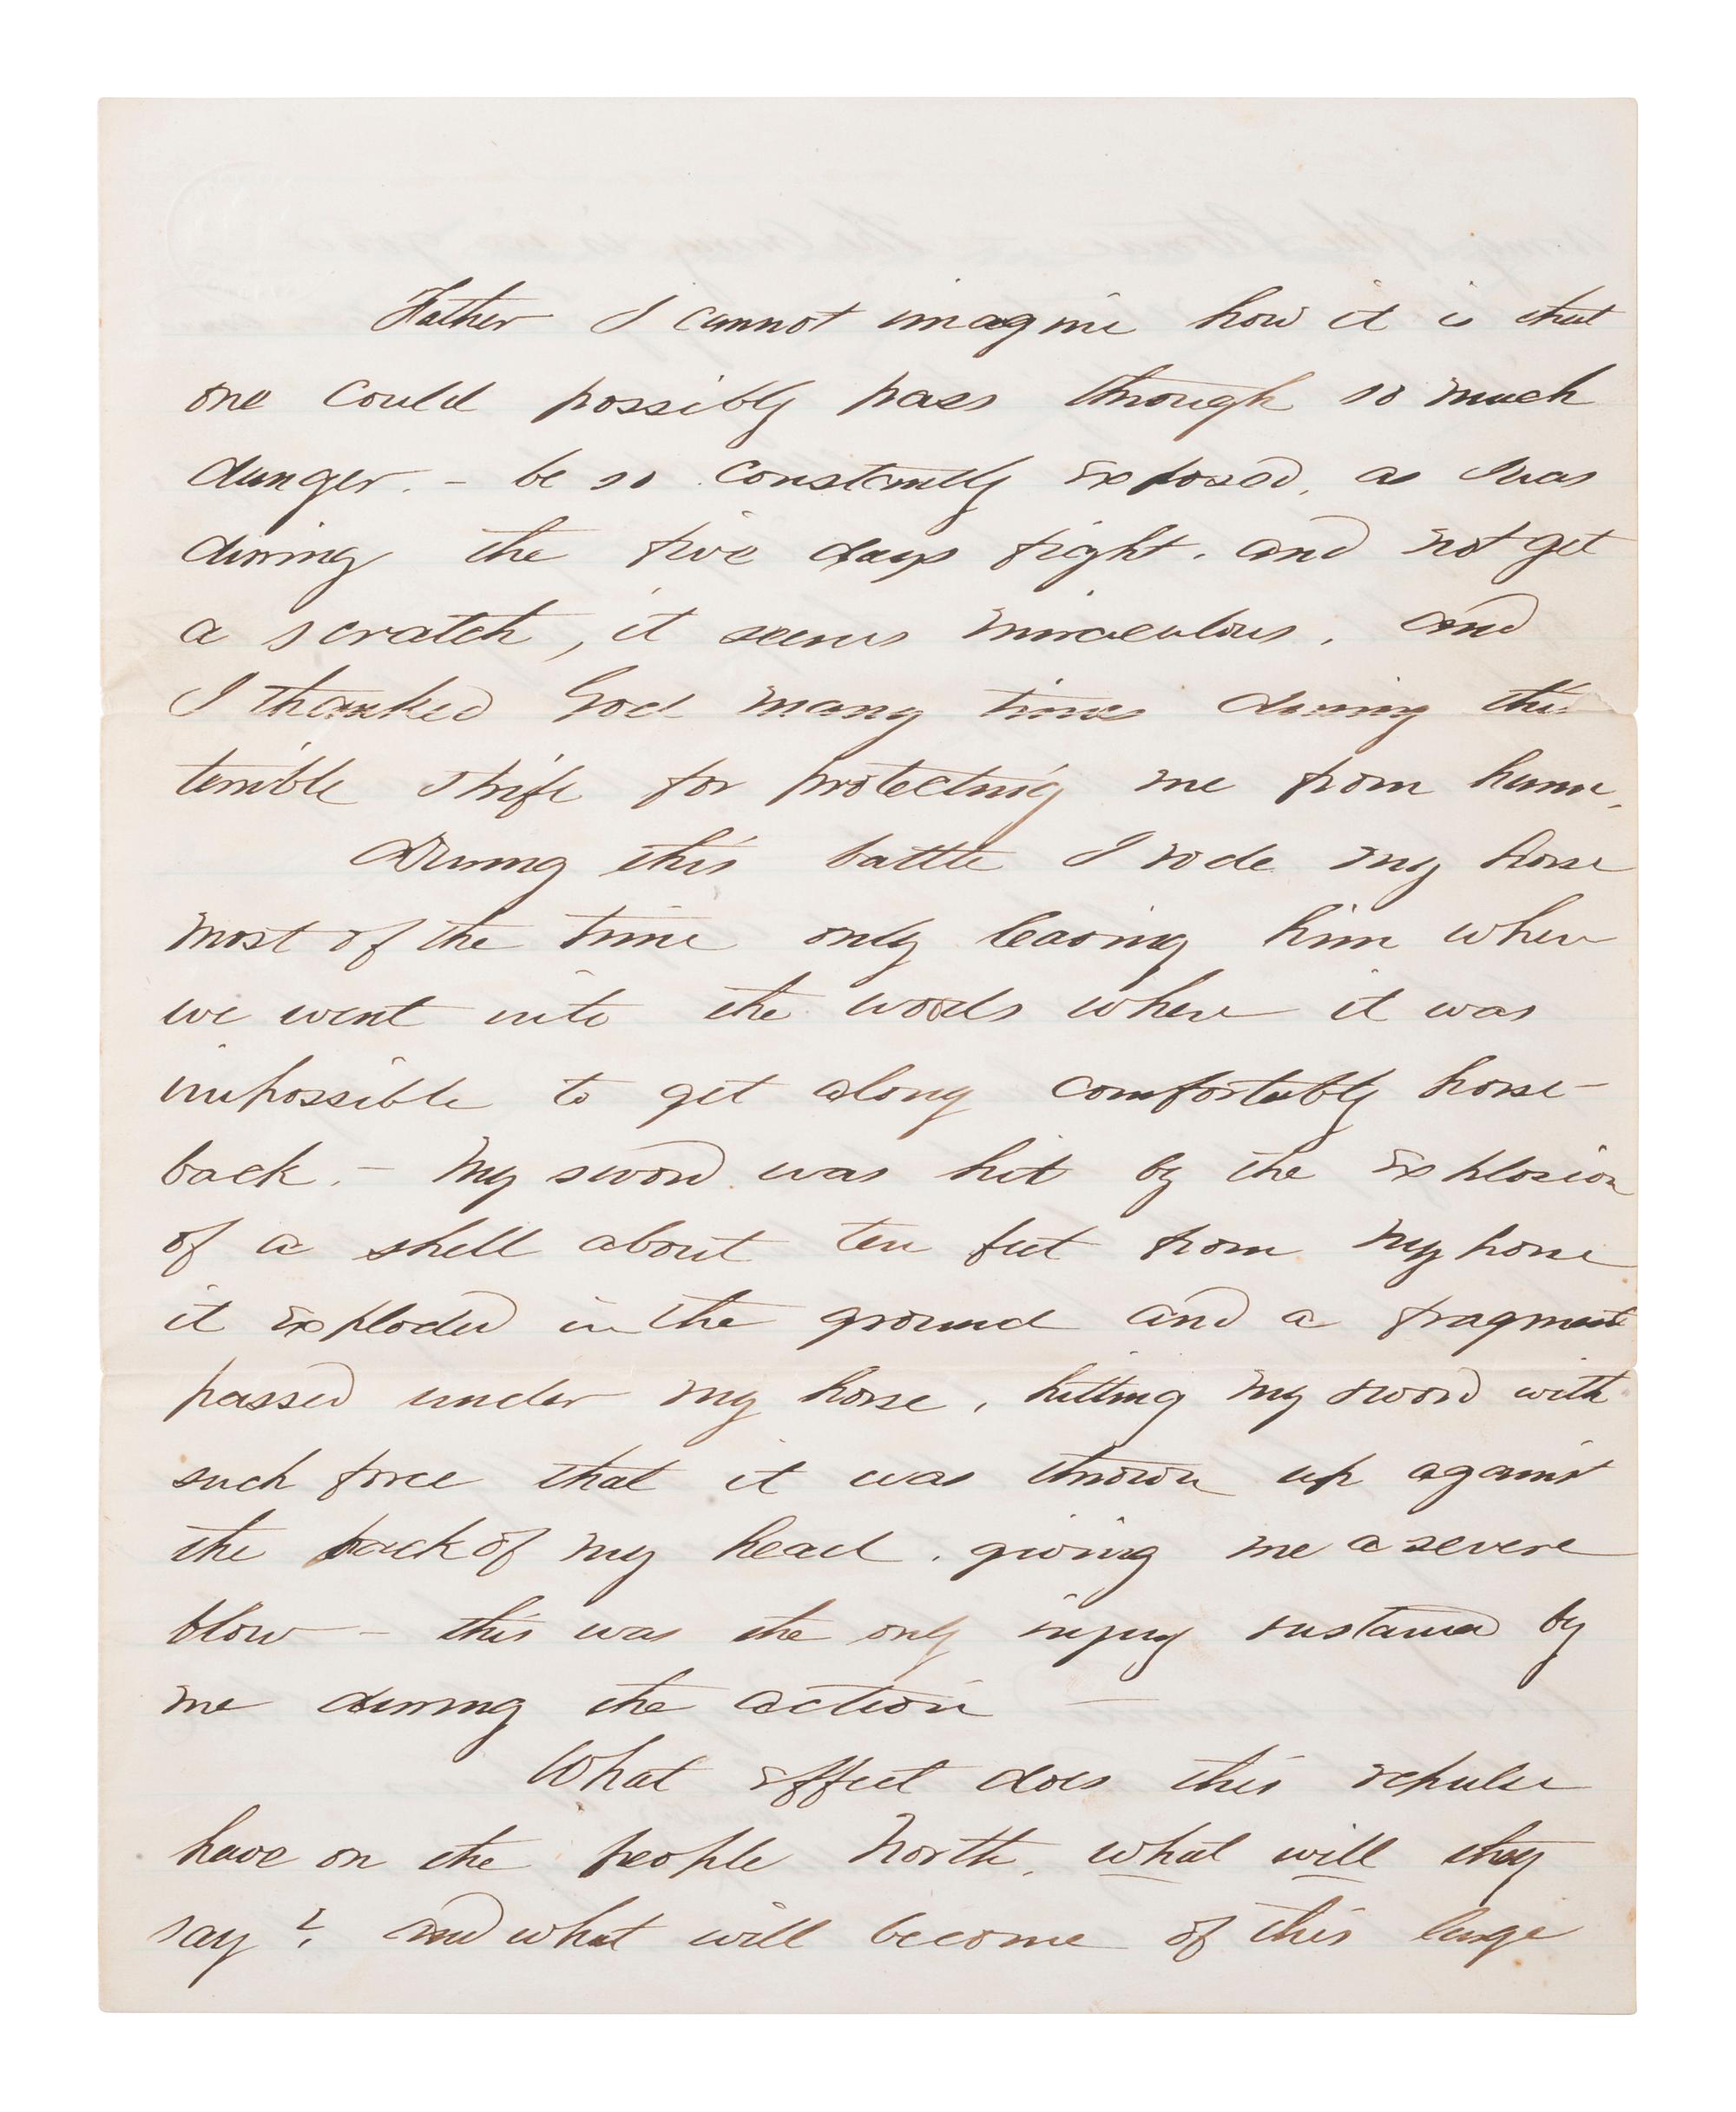 Father I cannot imagine how it is that
one could possibly pass through so much
danger. - be so constantly exposed, as I was
during the five days fight. and not get
a scratch, it seems miraculous. and
I thanked God many times during this
terrible strife for protecting me from harm.
During this battle I rode my horse
most of the time only leaving him when
we went into the woods where it was
impossible to get along comfortably horse-
back. - My sword was hit by the explosion
of a shell about ten feet from my horse
it exploded in the ground and a fragment
passed under my horse, hitting my sword with
such force that it was thrown up against
the back of my head. giving me a severe
blow - this was the only injury sustained by
me during the action -
What effect does this repulse
have on the people North, what will they
say? and what will become of this large